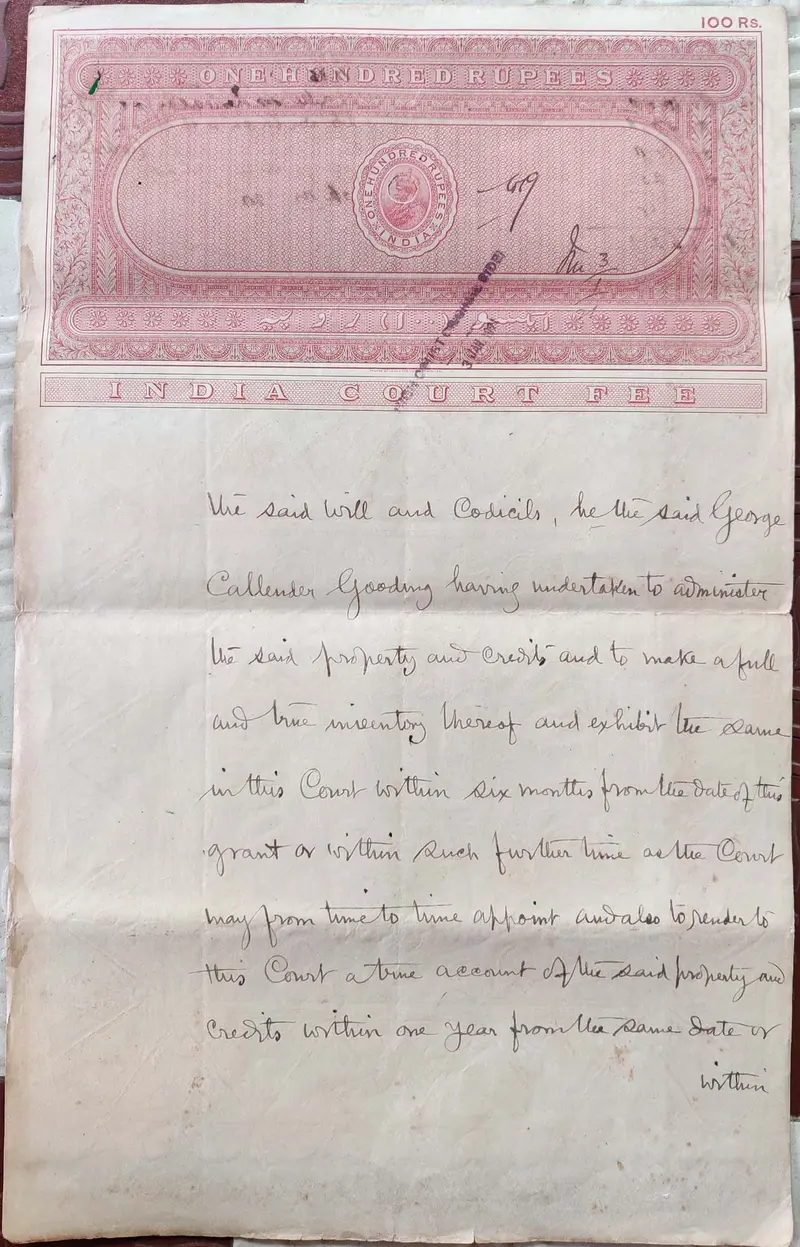 100 Rs.
ONE HUNDRED RUPEES
ONE HUNDRED RUPEES
INDIA
3
3 JAN
ایکسو (۱۰۰) روپیہ
INDIA COURT FEE
the said Will and Codicils, he the said George
Callender Gooding having undertaken to administer
the said property and credits and to make a full
and true inventory thereof and exhibit the same
in this Court within six months from the date of this
grant or within such further time as the Court
may from time to time appoint and also to render to
this Court a true account of the said property and
credits within one year from the same date or
within